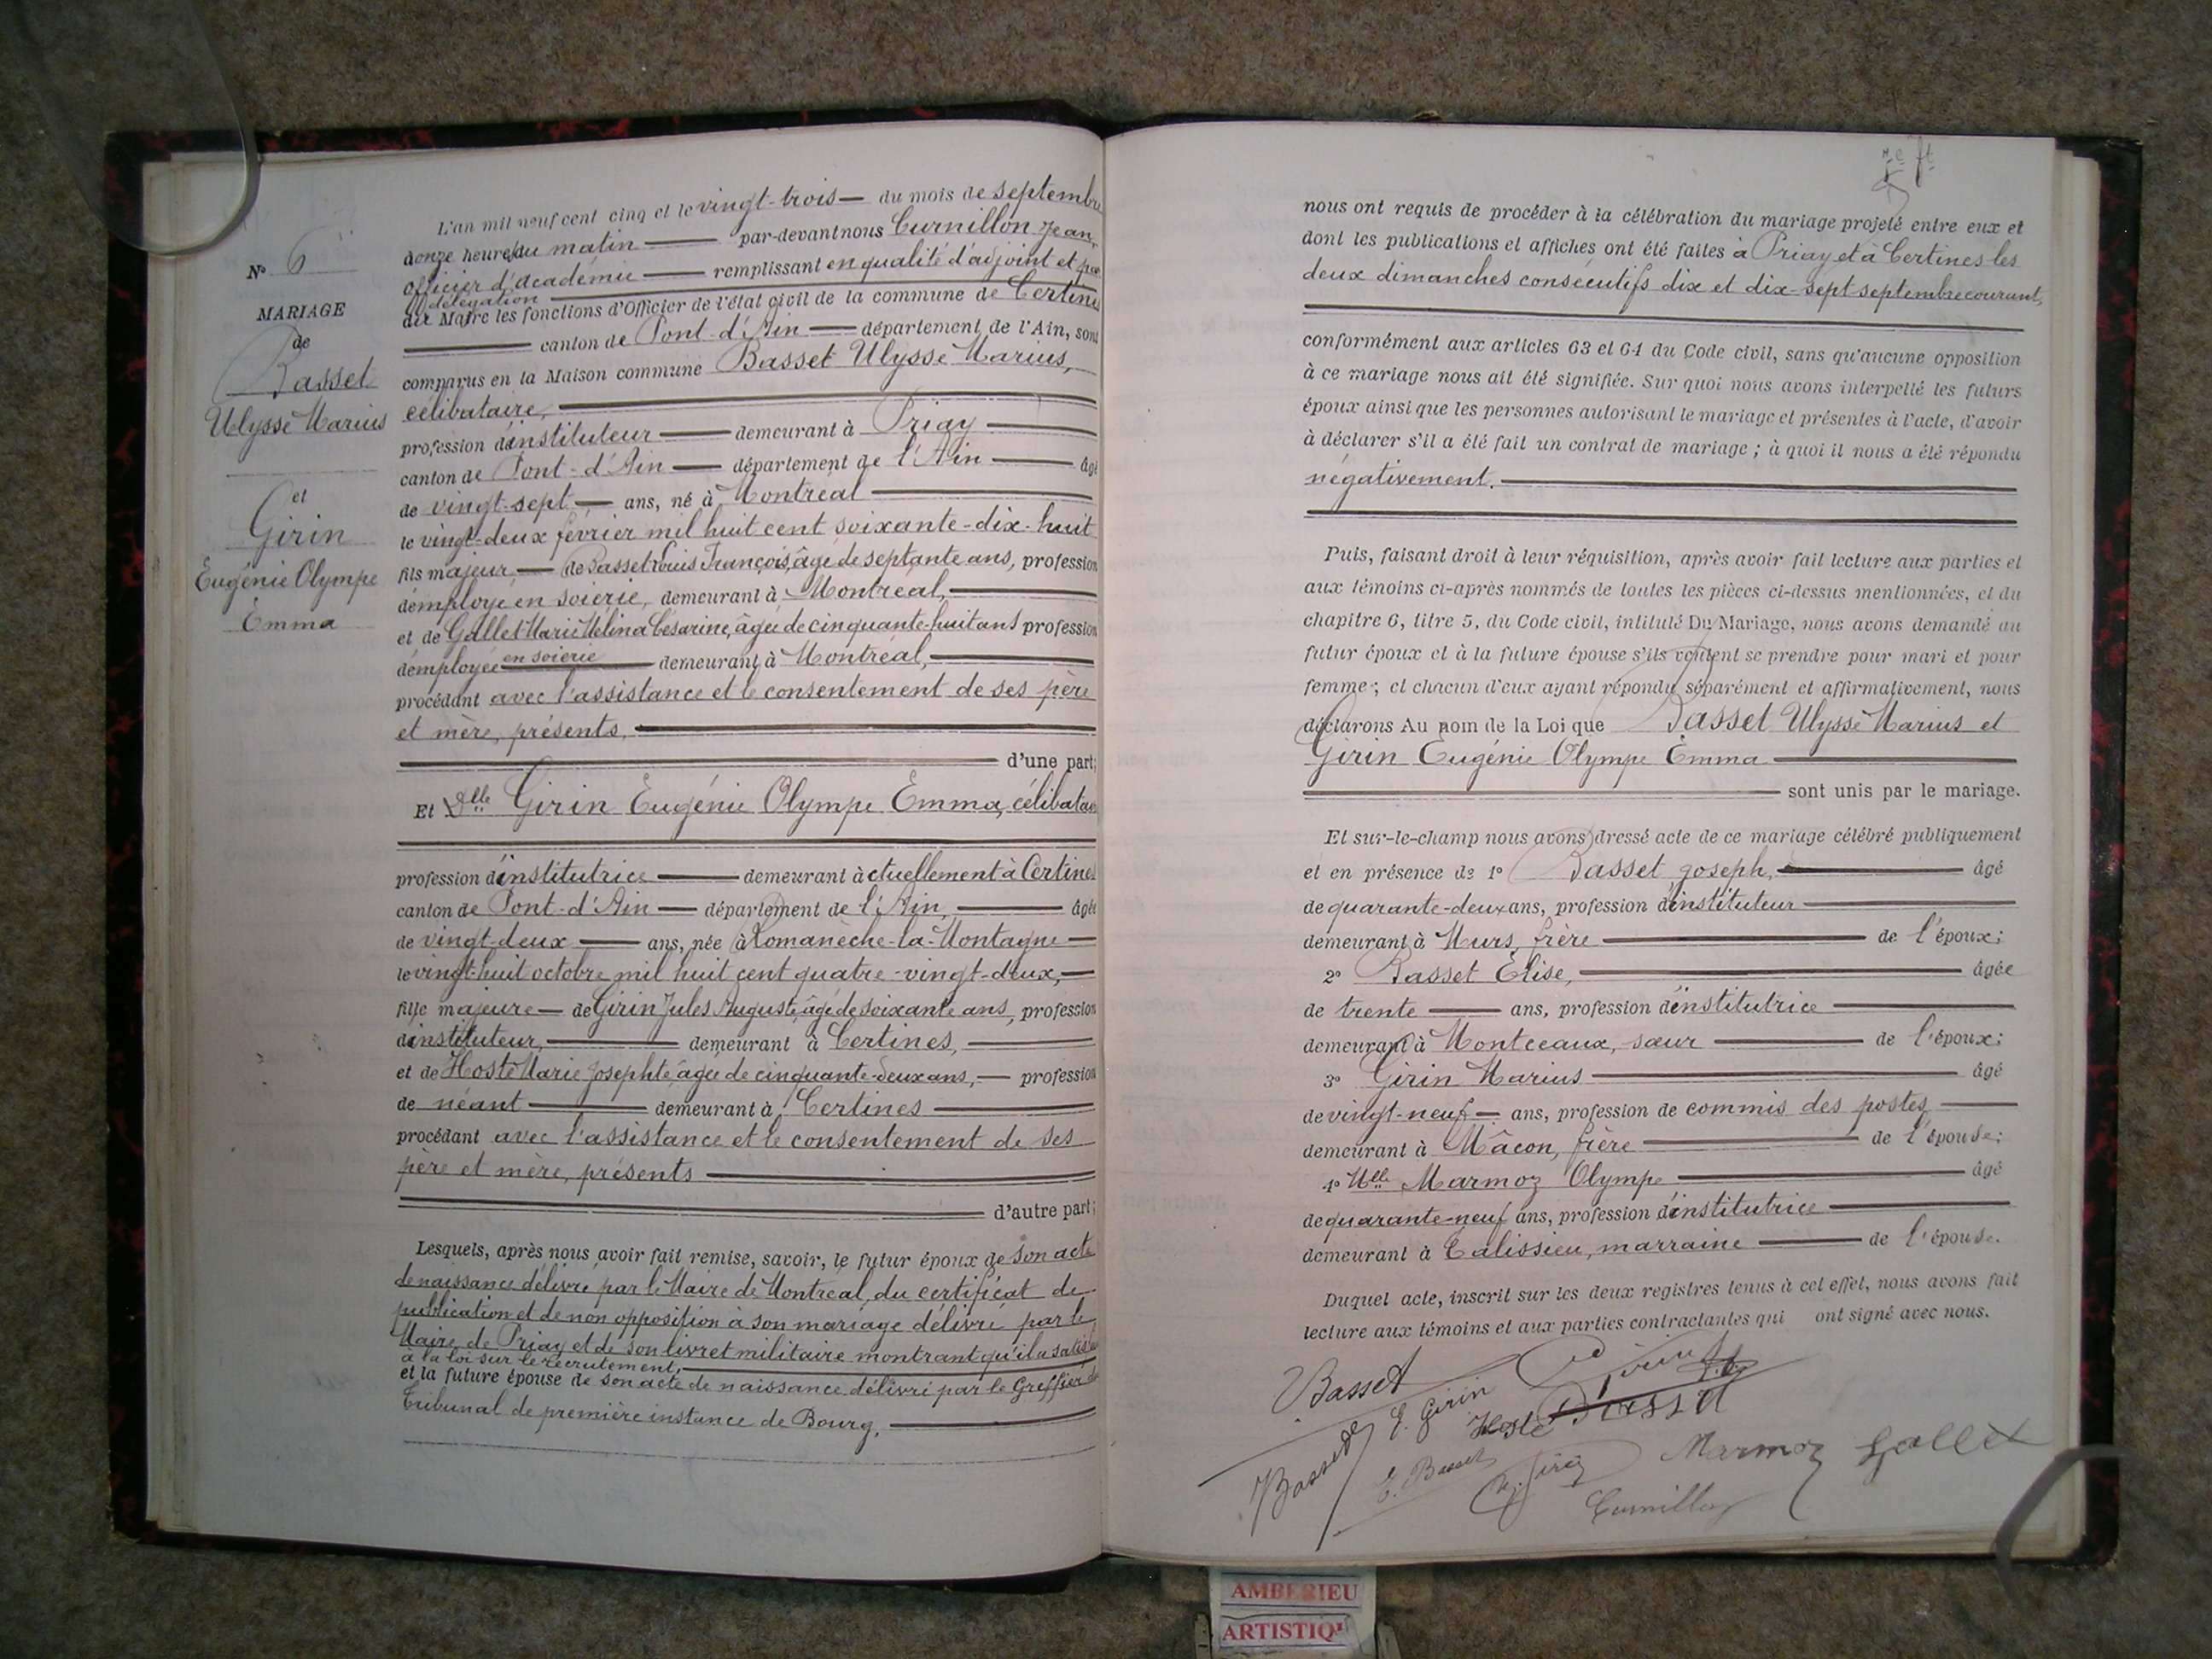 N° 6
MARIAGE
de
Basset
Ulysse Marius
et
Girin
Eugénie Olympe
Emma
L'an mil neuf cent cinq et le vingt-trois du mois de septembre
onze heures du matin par-devant nous Curnillon Jean,
officier d'académie remplissant en qualité d'adjoint et par
délégation
du Maire les fonctions d'Officier de l'état civil de la commune de Certines
canton de Pont-d'Ain département de l'Ain, sont
comparus en la Maison commune Basset Ulysse Marius,
célibataire,
profession d'instituteur demeurant à Priay
canton de Pont-d'Ain département de l'Ain âgé
de vingt-sept ans, né à Montréal
le vingt-deux février mil huit cent soixante-dix-huit
fils majeur de Basset Louis François, âgé de septante ans, profession
d'employé en soierie, demeurant à Montréal,
et de Gallet Marie Mélina Césarine, âgée de cinquante-huit ans profession
d'employée en soierie demeurant à Montréal,
procédant avec l'assistance et le consentement de ses père
et mère, présents.
d'une part;
Et Dlle Girin Eugénie Olympe Emma, célibataire
profession d'institutrice demeurant actuellement à Certines
canton de Pont-d'Ain département de l'Ain, âgée
de vingt-deux ans, née à Romanèche-la-Montagne
le vingt-huit octobre mil huit cent quatre-vingt-deux,
fille majeure de Girin Jules Auguste, âgé de soixante ans, profession
d'instituteur, demeurant à Certines,
et de Hoste Marie Josephte, âgée de cinquante-deux ans, profession
de néant demeurant à Certines
procédant avec l'assistance et le consentement de ses
père et mère, présents
d'autre part;
Lesquels, après nous avoir fait remise, savoir, le futur époux de son acte
de naissance délivré par le Maire de Montréal, du certificat de
publication et de non opposition à son mariage délivré par le
Maire de Priay et de son livret militaire montrant qu'il a satisfait
à la loi sur le recrutement,
et la future épouse de son acte de naissance délivré par le Greffier du
Tribunal de première instance de Bourg.
nous ont requis de procéder à la célébration du mariage projeté entre eux et
dont les publications et affiches ont été faites à Priay et à Certines les
deux dimanches consécutifs dix et dix-sept septembre courant,
conformément aux articles 63 et 64 du Code civil, sans qu'aucune opposition
à ce mariage nous ait été signifiée. Sur quoi nous avons interpellé les futurs
époux ainsi que les personnes autorisant le mariage et présentes à l'acte, d'avoir
à déclarer s'il a été fait un contrat de mariage ; à quoi il nous a été répondu
négativement.
Puis, faisant droit à leur réquisition, après avoir fait lecture aux parties et
aux témoins ci-après nommés de toutes les pièces ci-dessus mentionnées, et du
chapitre 6, titre 5, du Code civil, intitulé Du Mariage, nous avons demandé au
futur époux et à la future épouse s'ils veulent se prendre pour mari et pour
femme ; et chacun d'eux ayant répondu séparément et affirmativement, nous
déclarons Au nom de la Loi que Basset Ulysse Marius et
Girin Eugénie Olympe Emma
sont unis par le mariage.
Et sur-le-champ nous avons dressé acte de ce mariage célébré publiquement
et en présence de 1° Basset Joseph, âgé
de quarante-deux ans, profession d'instituteur
demeurant à Murs, frère de l'époux;
2° Basset Élise, âgée
de trente ans, profession d'institutrice
demeurant à Montceaux, sœur de l'époux;
3° Girin Marius âgé
de vingt-neuf ans, profession de commis des postes
demeurant à Mâcon, frère de l'épouse;
4° Mlle Marmoz Olympe âgé
de quarante-neuf ans, profession d'institutrice
demeurant à Talissieu, marraine de l'épouse.
Duquel acte, inscrit sur les deux registres tenus à cet effet, nous avons fait
lecture aux témoins et aux parties contractantes qui ont signé avec nous.
Basset
E. Girin
Hoste Basset
Basset
E. Basset
Marmoz Gallet
Curnillon
AMBERIEU
ARTISTIQ